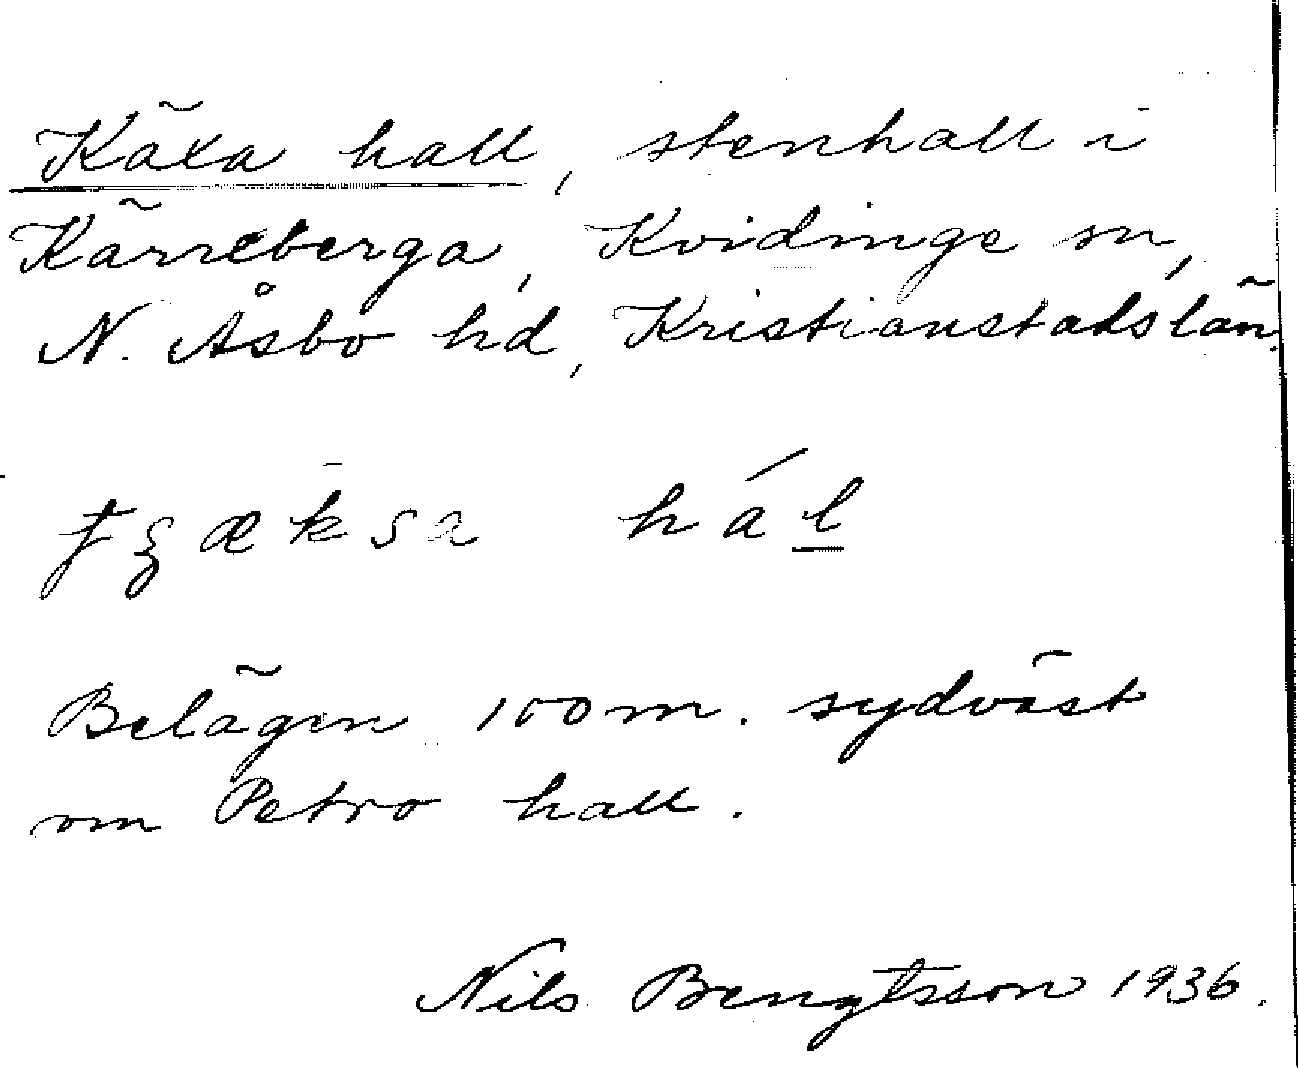 Käxa hall, stenhall i
Kärreberga, Kvidinge sn,
N. Åsbo hd, Kristianstads län.
hál
Belägen 100 m. sydväst
om Petro hall.
Nils Bengtsson 1936.